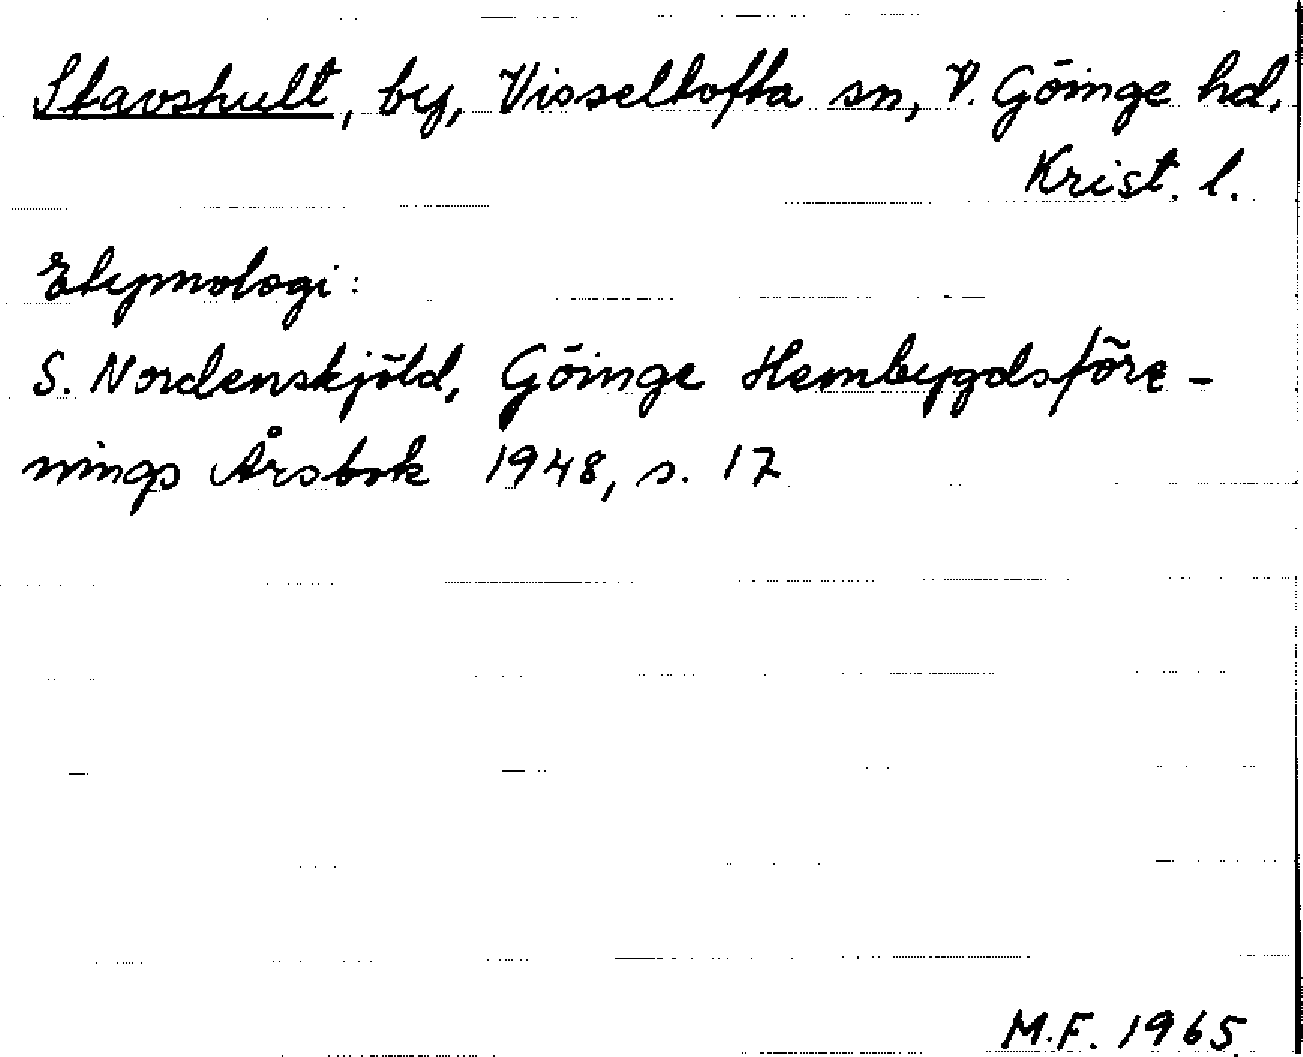 Stavshult, by, Visseltofta sn, V. Göinge hd.
Krist. l.
Etymologi:
S. Nordenskjöld, Göinge Hembygdsföre-
nings Årsbok 1948, s. 17
M.F. 1965